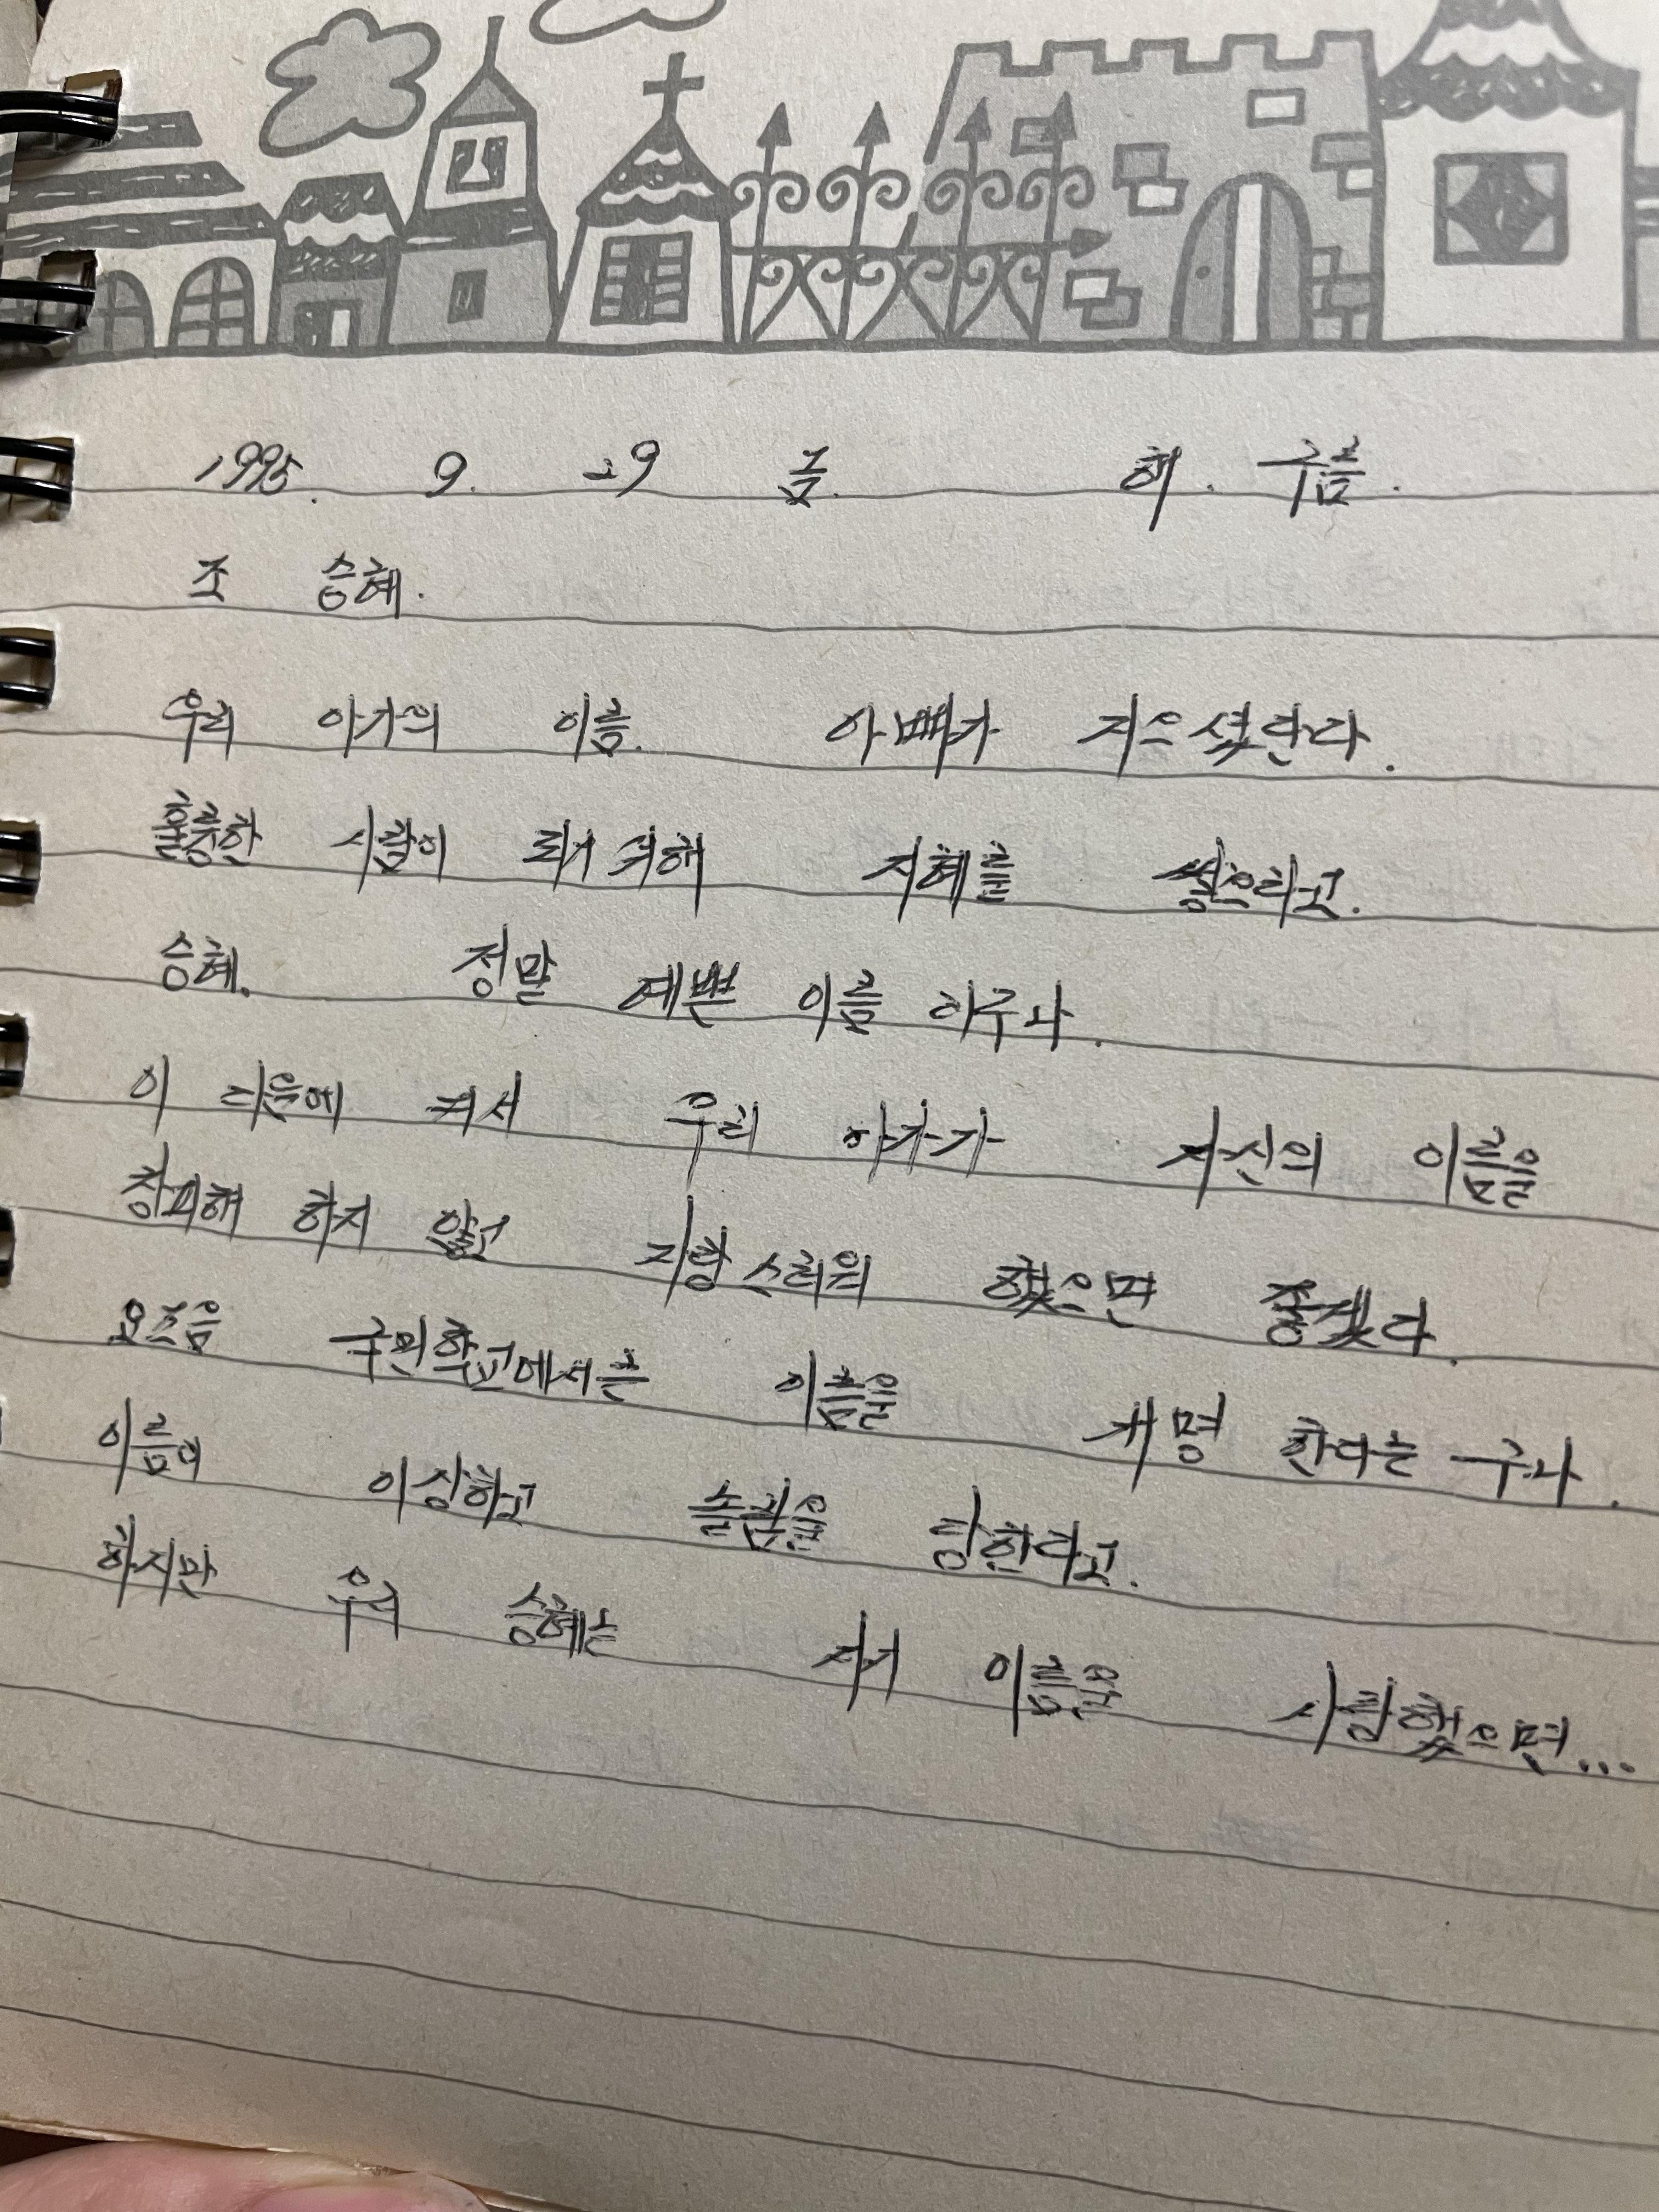 1995. 9. 29 금. 해. 구름.
조 승혜.
우리 아가의 이름. 아빠가 지으셨단다.
훌륭한 사람이 되기 위해 지혜를 쌓으라고.
승혜. 정말 예쁜 이름 이구나.
이 다음에 커서 우리 아가가 자신의 이름을
창피해 하지 않고 자랑 스러워 했으면 좋겠다.
요즈음 국민학교에서는 이름을 개명 한다는 구나.
이름이 이상하고 놀림을 당한다고.
하지만 우리 승혜는 자기 이름을 사랑했으면...